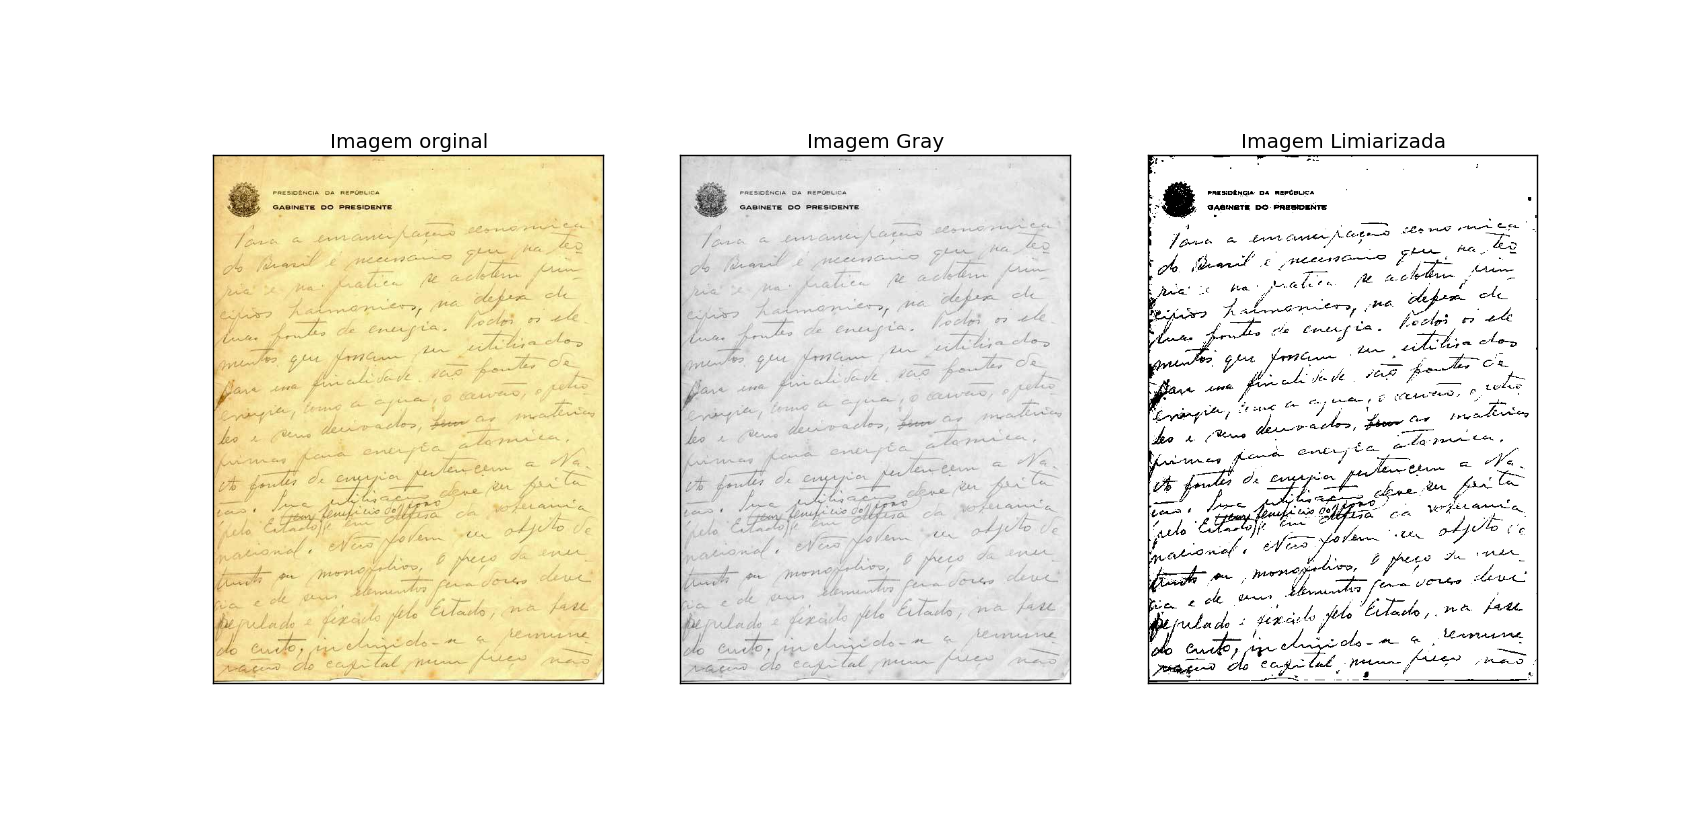 Imagem orginal
Imagem Gray
Imagem Limiarizada
PRESIDÊNCIA DA REPÚBLICA
GABINETE DO PRESIDENTE
Para a emancipação economica
do Brasil é necessario que na teo
ria e na pratica se adotem prin
cipios harmonicos, na defesa de
suas fontes de energia. Todos os ele-
mentos que possam ser utilisados
para essa finalidade são fontes de
energia, como a agua, o carvão, o petro
leo e seus derivados, as materias
primas para energia atomica.
As fontes de energia pertencem a Na-
ção. Sua utilisação deve ser feita
em beneficio do povo
pelo Estado e em defesa da soberania
nacional. Não podem ser objeto de
trusts ou monopolios. O preço da ener
gia e de seus elementos geradores deve
regulado e fixado pelo Estado, na base
do custo, incluindo-se a remune
ração do capital, num preço não
PRESIDÊNCIA DA REPÚBLICA
GABINETE DO PRESIDENTE
Para a emancipação economica
do Brasil é necessario que na teo
ria e na pratica se adotem prin
cipios harmonicos, na defesa de
suas fontes de energia. Todos os ele-
mentos que possam ser utilisados
para essa finalidade são fontes de
energia, como a agua, o carvão, o petro
leo e seus derivados, as materias
primas para energia atomica.
As fontes de energia pertencem a Na-
ção. Sua utilisação deve ser feita
em beneficio do povo
pelo Estado e em defesa da soberania
nacional. Não podem ser objeto de
trusts ou monopolios. O preço da ener
gia e de seus elementos geradores deve
regulado e fixado pelo Estado, na base
do custo, incluindo-se a remune
ração do capital, num preço não
PRESIDÊNCIA DA REPÚBLICA
GABINETE DO PRESIDENTE
Para a emancipação economica
do Brasil é necessario que na teo
ria e na pratica se adotem prin
cipios harmonicos, na defesa de
suas fontes de energia. Todos os ele
mentos que possam ser utilisados
para essa finalidade são fontes de
energia, como a agua, o carvão, o petro
leo e seus derivados, as materias
primas para energia atomica.
As fontes de energia pertencem a Na-
ção. Sua utilisação deve ser feita
em beneficio do povo
pelo Estado e em defesa da soberania
nacional. Não podem ser objeto de
trusts ou monopolios. O preço da ener
gia e de seus elementos geradores deve
regulado e fixado pelo Estado, na base
do custo, incluindo-se a remune
ração do capital, num preço não